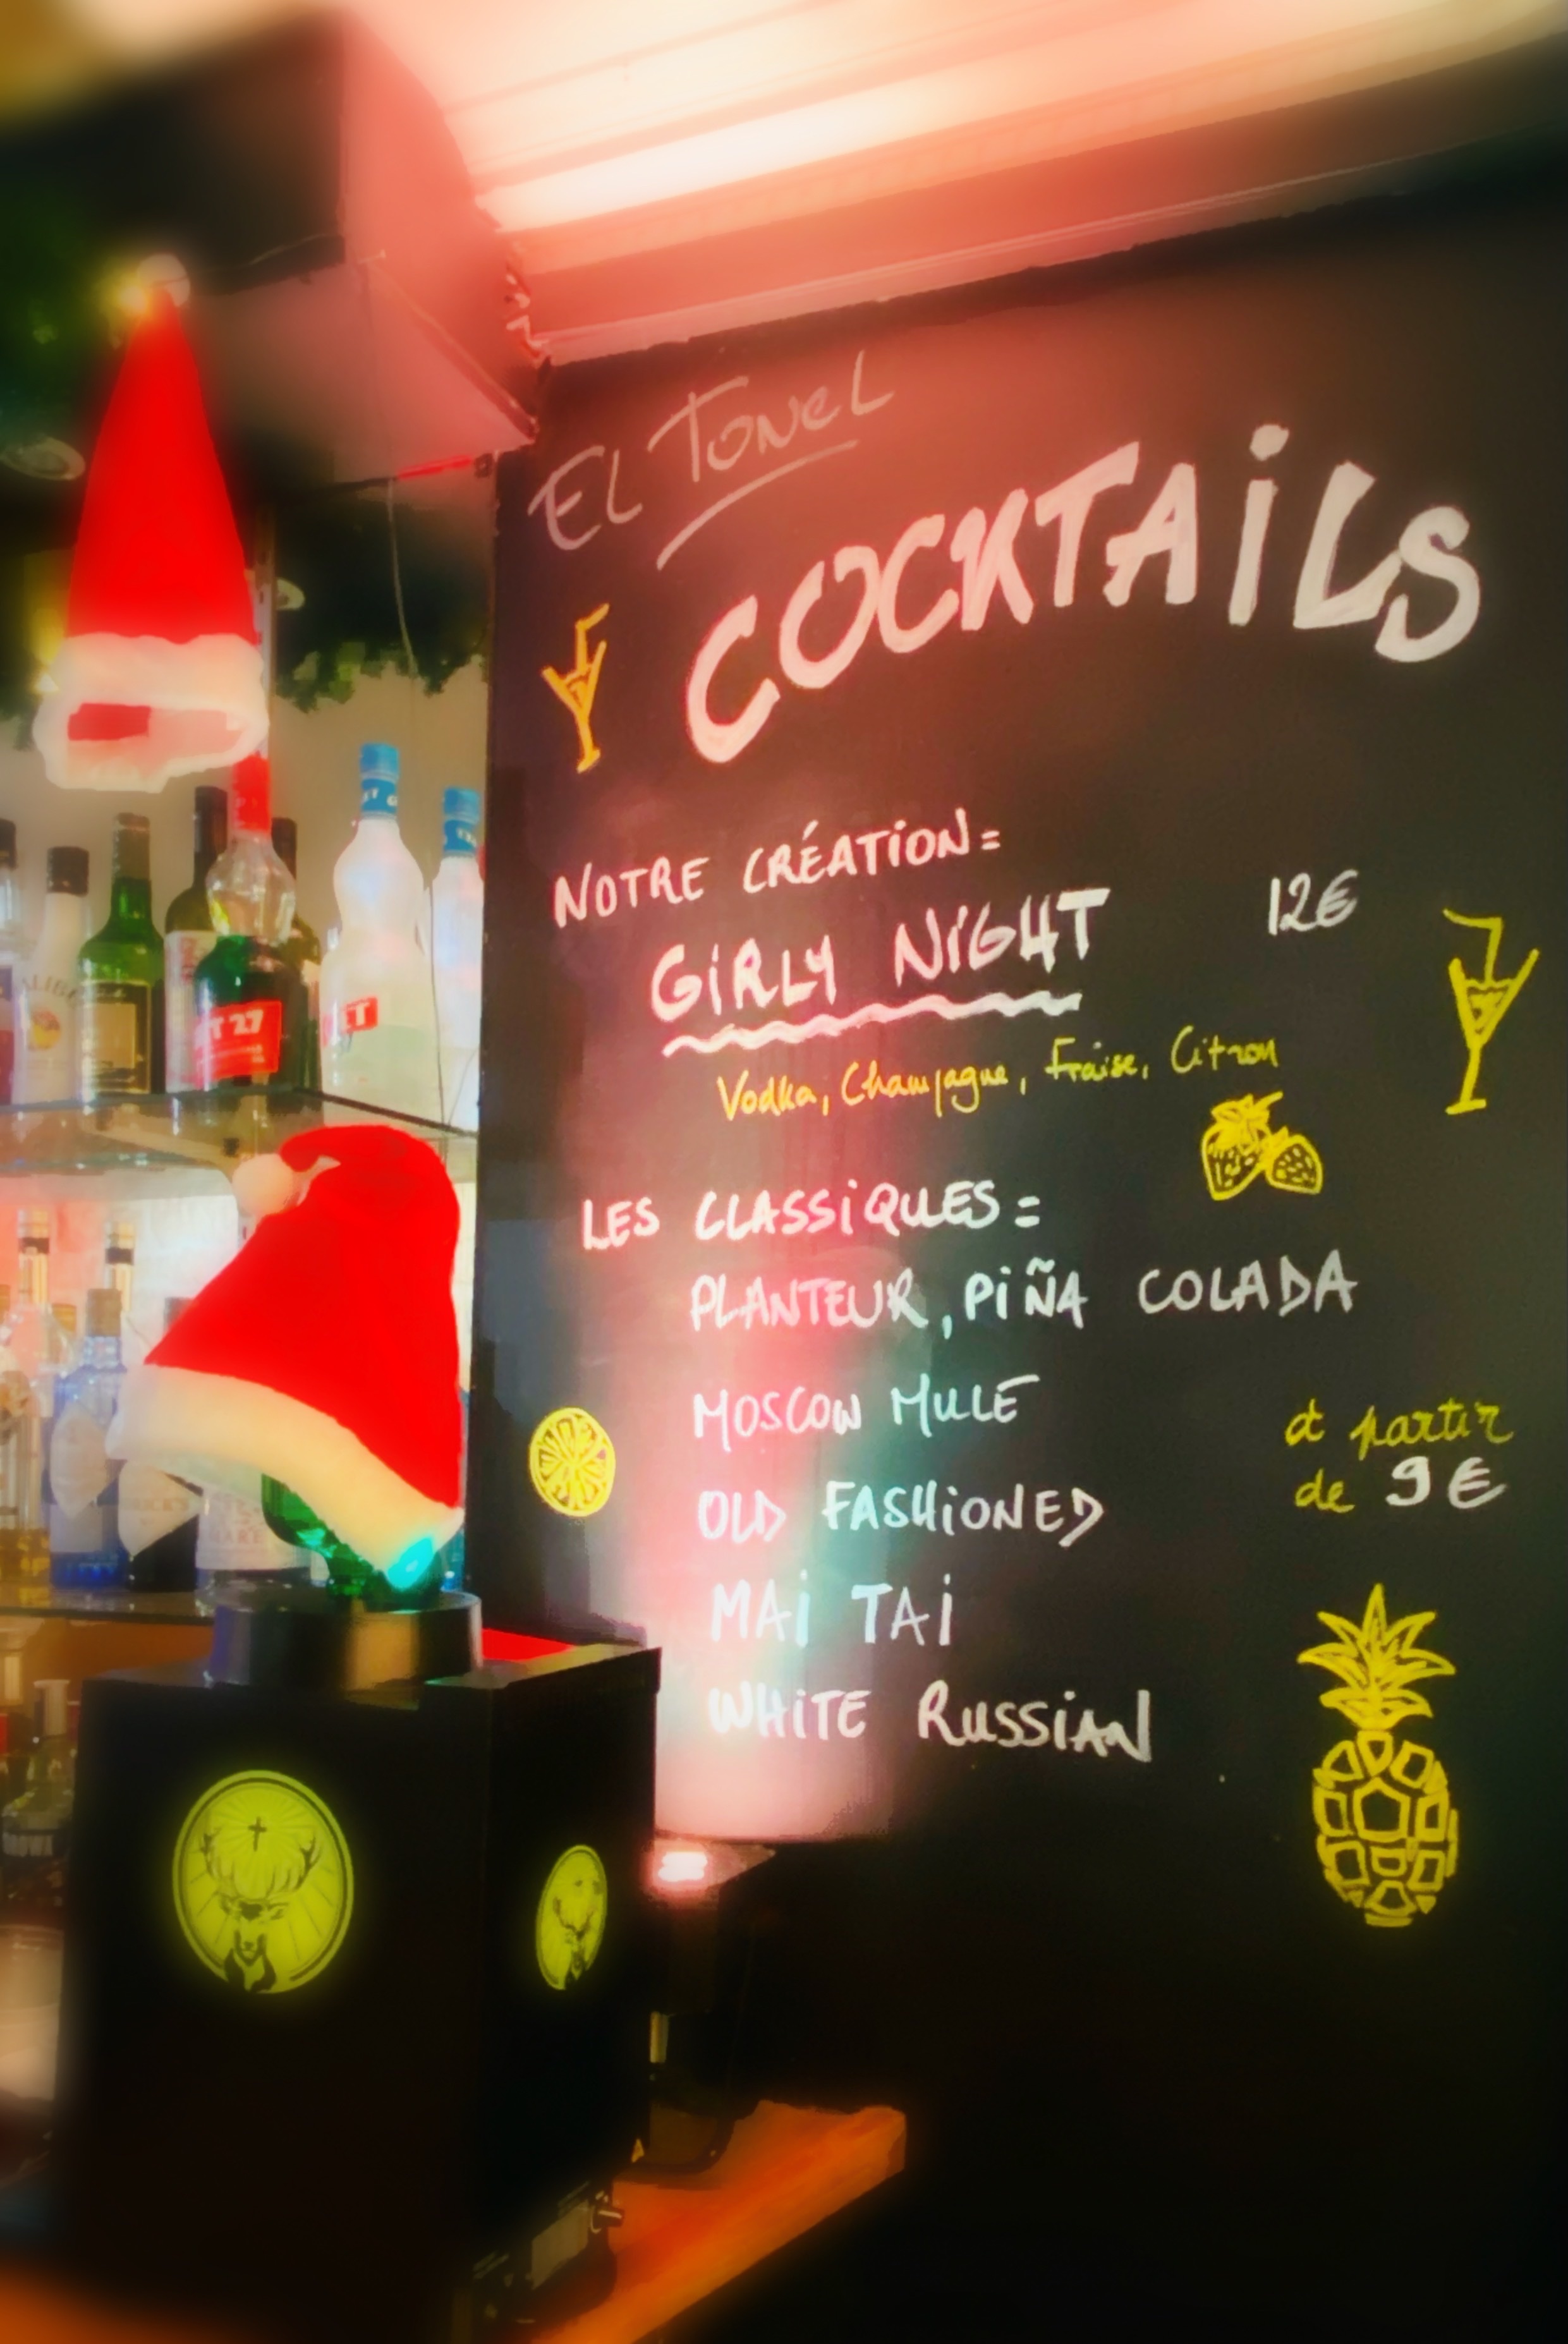 EL TONEL
COCKTAiLS
NOTRE CRÉATiON=
GiRLY NiGHT 12€
Vodka, Champagne, Fraise, Citron
LES CLASSiQUES=
PLANTEUR, PiÑA COLADA
MOSCOW MULE
à partir
de 9€
OLD FASHiONED
MAi TAi
WHiTE RUSSiAN
T 27
ET